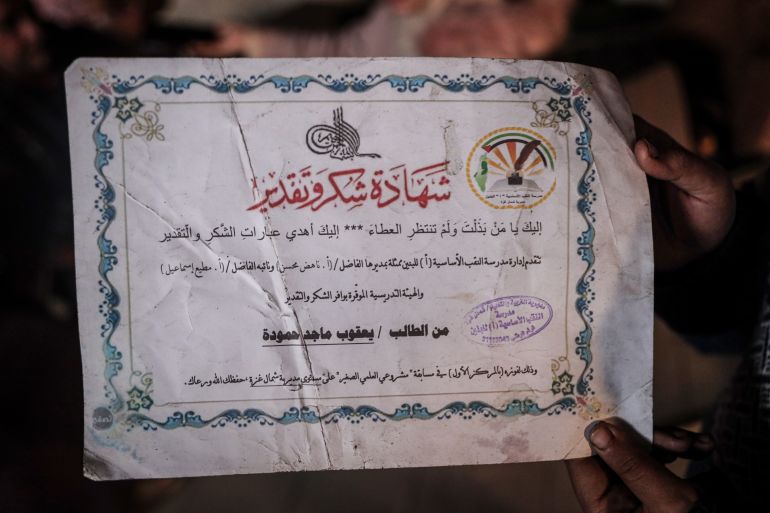 شهادة شكر وتقدير
إليك يا من بذلت ولم تنتظر العطاء *** إليك أهدي عبارات الشكر والتقدير
تتقدم إدارة مدرسة النقب الأساسية (أ) للبنين ممثلة بمديرها الفاضل / (أ. ناهض محسن) ونائبه الفاضل / (أ. مطيع إسماعيل)
والهيئة التدريسية الموقرة بوافر الشكر والتقدير
من الطالب / يعقوب ماجد حمودة
وذلك لفوزه (بالمركز الأول) في مسابقة "مشروعي العلمي الصغير" على مستوى مديرية شمال غزة، حفظك الله ورعاك.
مدرسة
النقب الأساسية (أ) للبنين